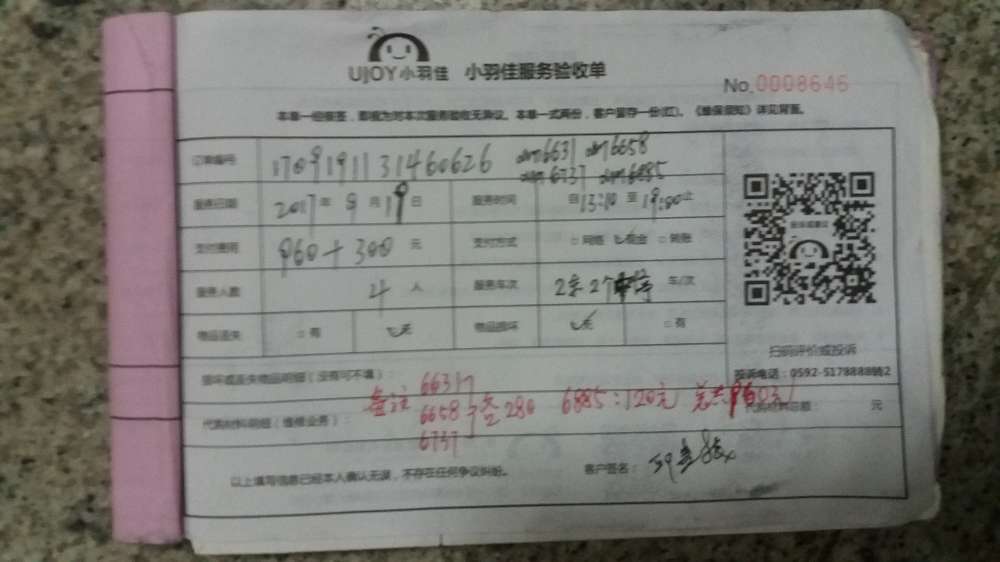 UJOY小羽佳 小羽佳服务验收单
No.0008646
本单一经签签，即视为对本次服务验收无异议。本单一式两份，客户留存一份(红)。《维保须知》详见背面。
订单编号 1709191131460626 dm6631 dm6658
dm6737 dm6885
服务日期 2017年9月19日 服务时间 自13:10至19:00止
支付费用 960+300元 支付方式 □网络 □现金 □转账
服务人数 4人 服务车次 2 车/次
物品丢失 □有 □无 物品损坏 □无 □有
扫码评价或投诉
损坏或丢失物品明细（没有可不填）：
投诉电话：0592-5178888
备注 6631
6658 各280 6885：120元 总共960元
6737
代购材料明细（维修业务）： 代购材料总额： 元
以上填写信息已经本人确认无误，不存在任何争议纠纷。 客户签名：